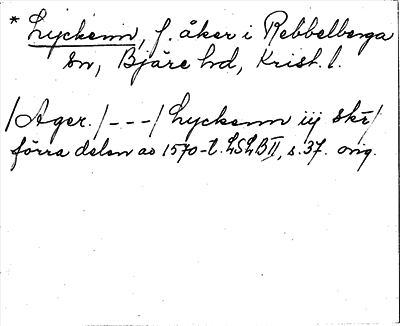 * Lyckenn, f. åker i Rebbelberga
sn, Bjäre hd, Krist. l.
/Ager./---/Lyckenn iij sk
förra delen av 1570-t. LSLB II, s. 37. orig.